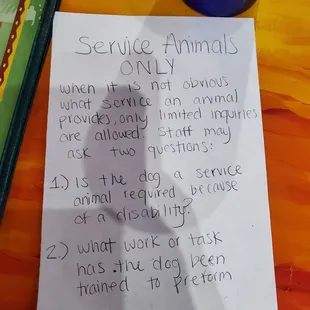 Service Animals
ONLY
when it is not obvious
what service an animal
provides, only limited inquiries
are allowed. Staff may
ask two questions:
1.) Is the dog a service
animal required because
of a disability?
2.) what work or task
has the dog been
trained to preform